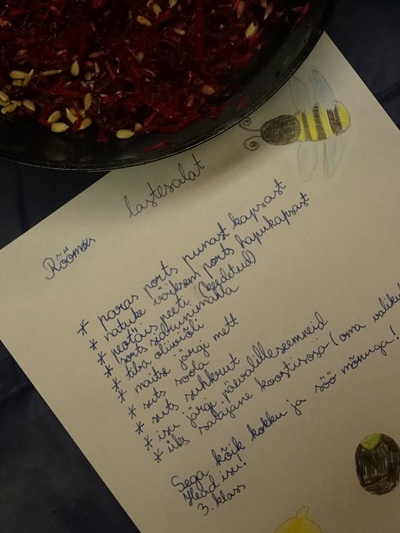 Rõõmus
lastesalat
* paras ports punast kapsast
* natuke väiksem ports hapukapsast
* peotäis peeti (keedetud)
* sorts sidrunimahla
* tiba oliiviõli
* maitse järgi mett
* suts soola
* suts suhkrut
* isu järgi päevalilleseemneid
* üks salajane koostisosa (oma valikul
Sega kõik kokku ja söö mõnuga!
Head isu!
3. klass